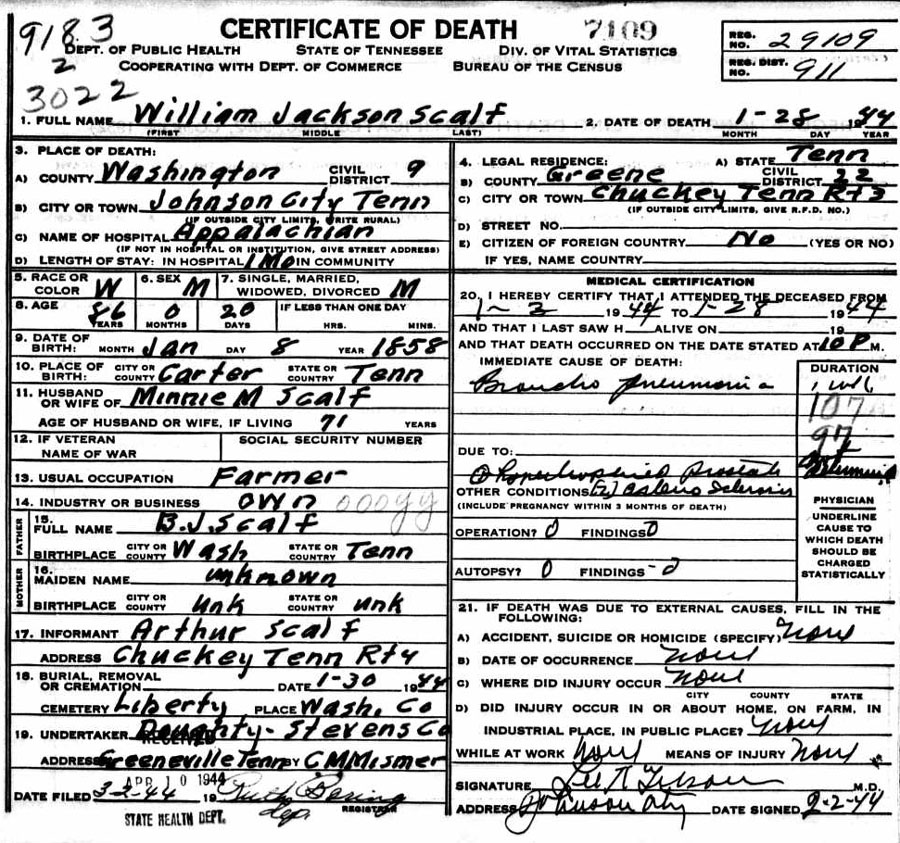 9183
2
3022
CERTIFICATE OF DEATH
7109
DEPT. OF PUBLIC HEALTH STATE OF TENNESSEE DIV. OF VITAL STATISTICS
COOPERATING WITH DEPT. OF COMMERCE BUREAU OF THE CENSUS
REG. NO. 29109
REG. DIST. NO. 911
1. FULL NAME William Jackson Scalf
(FIRST) MIDDLE LAST)
2. DATE OF DEATH 1-28 1944
MONTH DAY YEAR
3. PLACE OF DEATH:
A) COUNTY Washington CIVIL DISTRICT 9
B) CITY OR TOWN Johnson City Tenn
(IF OUTSIDE CITY LIMITS, WRITE RURAL)
C) NAME OF HOSPITAL Appalachian
(IF NOT IN HOSPITAL OR INSTITUTION, GIVE STREET ADDRESS)
D) LENGTH OF STAY: IN HOSPITAL 1 Mo IN COMMUNITY
4. LEGAL RESIDENCE: A) STATE Tenn
B) COUNTY Greene CIVIL DISTRICT 22
C) CITY OR TOWN Chuckey Tenn Rt 3
(IF OUTSIDE CITY LIMITS, GIVE R.F.D. NO.)
D) STREET NO.
E) CITIZEN OF FOREIGN COUNTRY No (YES OR NO)
IF YES, NAME COUNTRY
5. RACE OR COLOR W 6. SEX M 7. SINGLE, MARRIED, WIDOWED, DIVORCED M
8. AGE 86 YEARS 0 MONTHS 20 DAYS IF LESS THAN ONE DAY HRS. MINS.
9. DATE OF BIRTH: MONTH Jan DAY 8 YEAR 1858
10. PLACE OF BIRTH: CITY OR COUNTY Carter STATE OR COUNTRY Tenn
11. HUSBAND OR WIFE OF Minnie M Scalf
AGE OF HUSBAND OR WIFE, IF LIVING 71 YEARS
12. IF VETERAN NAME OF WAR SOCIAL SECURITY NUMBER
13. USUAL OCCUPATION Farmer
14. INDUSTRY OR BUSINESS own 000yy
FATHER
15. FULL NAME B.J. Scalf
BIRTHPLACE CITY OR COUNTY Wash STATE OR COUNTRY Tenn
MOTHER
16. MAIDEN NAME unknown
BIRTHPLACE CITY OR COUNTY unk STATE OR COUNTRY unk
17. INFORMANT Arthur Scalf
ADDRESS Chuckey Tenn Rt 4
18. BURIAL, REMOVAL OR CREMATION DATE 1-30 1944
CEMETERY Liberty PLACE Wash. Co
19. UNDERTAKER Doughty-Stevens Co
RECEIVED
ADDRESS Greeneville Tenn BY C M Mismer
APR 10 1944
DATE FILED 3-2-44 19 Ruth Boring
REGISTRAR
dep.
STATE HEALTH DEPT.
MEDICAL CERTIFICATION
20. I HEREBY CERTIFY THAT I ATTENDED THE DECEASED FROM
1-2 1944 TO 1-28 1944
AND THAT I LAST SAW H ALIVE ON 19
AND THAT DEATH OCCURRED ON THE DATE STATED AT 10 P M.
IMMEDIATE CAUSE OF DEATH: DURATION
Broncho pneumonia 1 wk
107
97
DUE TO:
Hypertrophied prostate
OTHER CONDITIONS (2) Arterio Sclerosis
(INCLUDE PREGNANCY WITHIN 3 MONTHS OF DEATH)
OPERATION? 0 FINDINGS 0
AUTOPSY? 0 FINDINGS -0
PHYSICIAN
UNDERLINE CAUSE TO WHICH DEATH SHOULD BE CHARGED STATISTICALLY
21. IF DEATH WAS DUE TO EXTERNAL CAUSES, FILL IN THE FOLLOWING:
A) ACCIDENT, SUICIDE OR HOMICIDE (SPECIFY) None
B) DATE OF OCCURRENCE None
C) WHERE DID INJURY OCCUR None
CITY COUNTY STATE
D) DID INJURY OCCUR IN OR ABOUT HOME, ON FARM, IN
INDUSTRIAL PLACE, IN PUBLIC PLACE? None
WHILE AT WORK None MEANS OF INJURY None
SIGNATURE M.D.
ADDRESS Johnson City DATE SIGNED 2-2-44